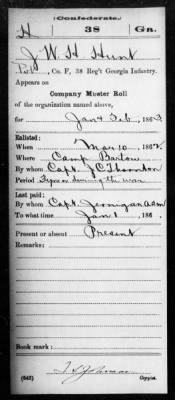 (Confederate.)
H 38 Ga.
J W H Hunt
Pvt, Co. F, 38 Reg't Georgia Infantry.
Appears on
Company Muster Roll
of the organization named above,
for Jan & Feb, 1863
Enlisted:
When Mar 10, 1862.
Where Camp Bartow
By whom Capt. J C Thornton
Period 3 years or during the war
Last paid:
By whom Capt. Jernigan AQM
To what time Jan 1, 186 .
Present or absent Present
Remarks:
Book mark:
(642) Copyist.